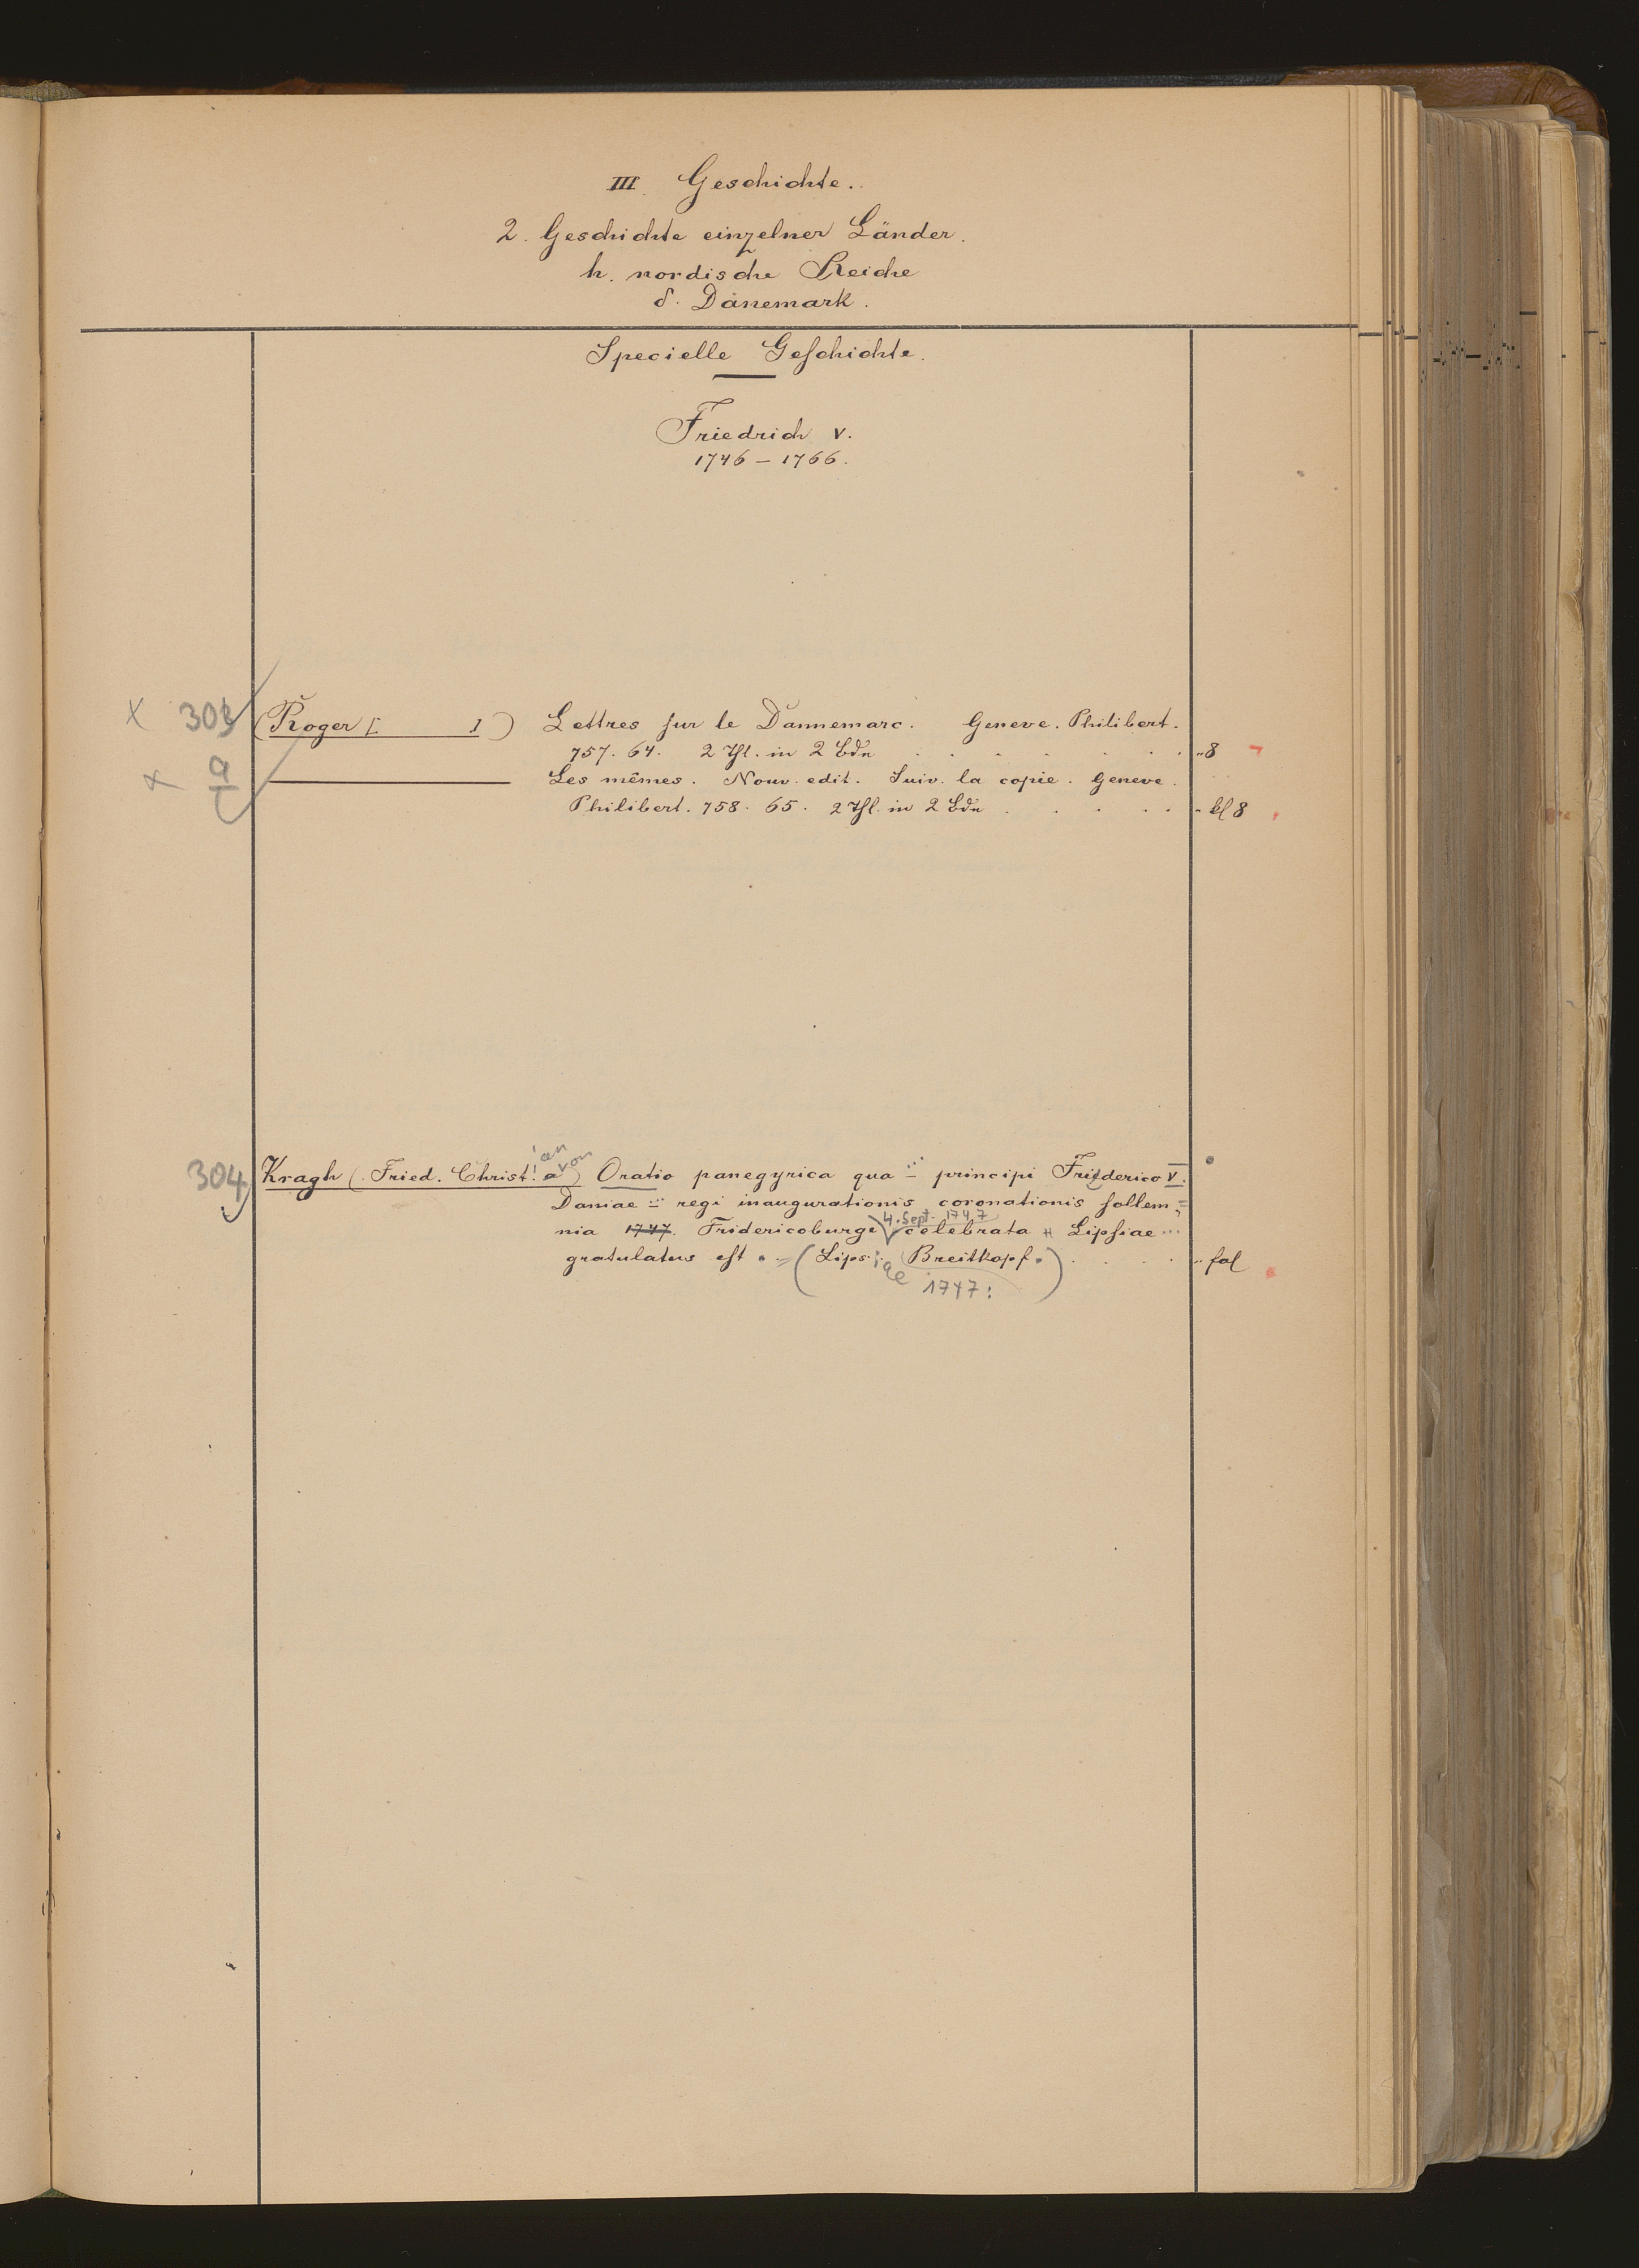 III. Geschichte.
2. Geschichte einzelner Länder.
h. nordische Reiche
δ. Dänemark.
Specielle Geschichte.
Friedrich V.
1746 – 1766.
x 303 (Roger [ ]) Lettres sur le Dannemarc. Geneve. Philibert.
757. 64. 2 Thl. in 2 Bdn . . . . . . . „ 8
x a ——— Les mêmes. Nouv. edit. Suiv. la copie. Geneve.
Philibert. 758. 65. 2 Thl. in 2 Bdn . . . . . „ kl 8
ian von
304 Kragh (Fried. Christ. a) Oratio panegyrica qua ... principi Friderico V.
Daniae ... regi inaugurationis coronationis sollem=
4. Sept. 1747
nia 1747. Fridericoburgi celebrata Lipsiae ...
gratulatus est. (Lipsiae Breitkopf.) . . . . „ fol
1747: